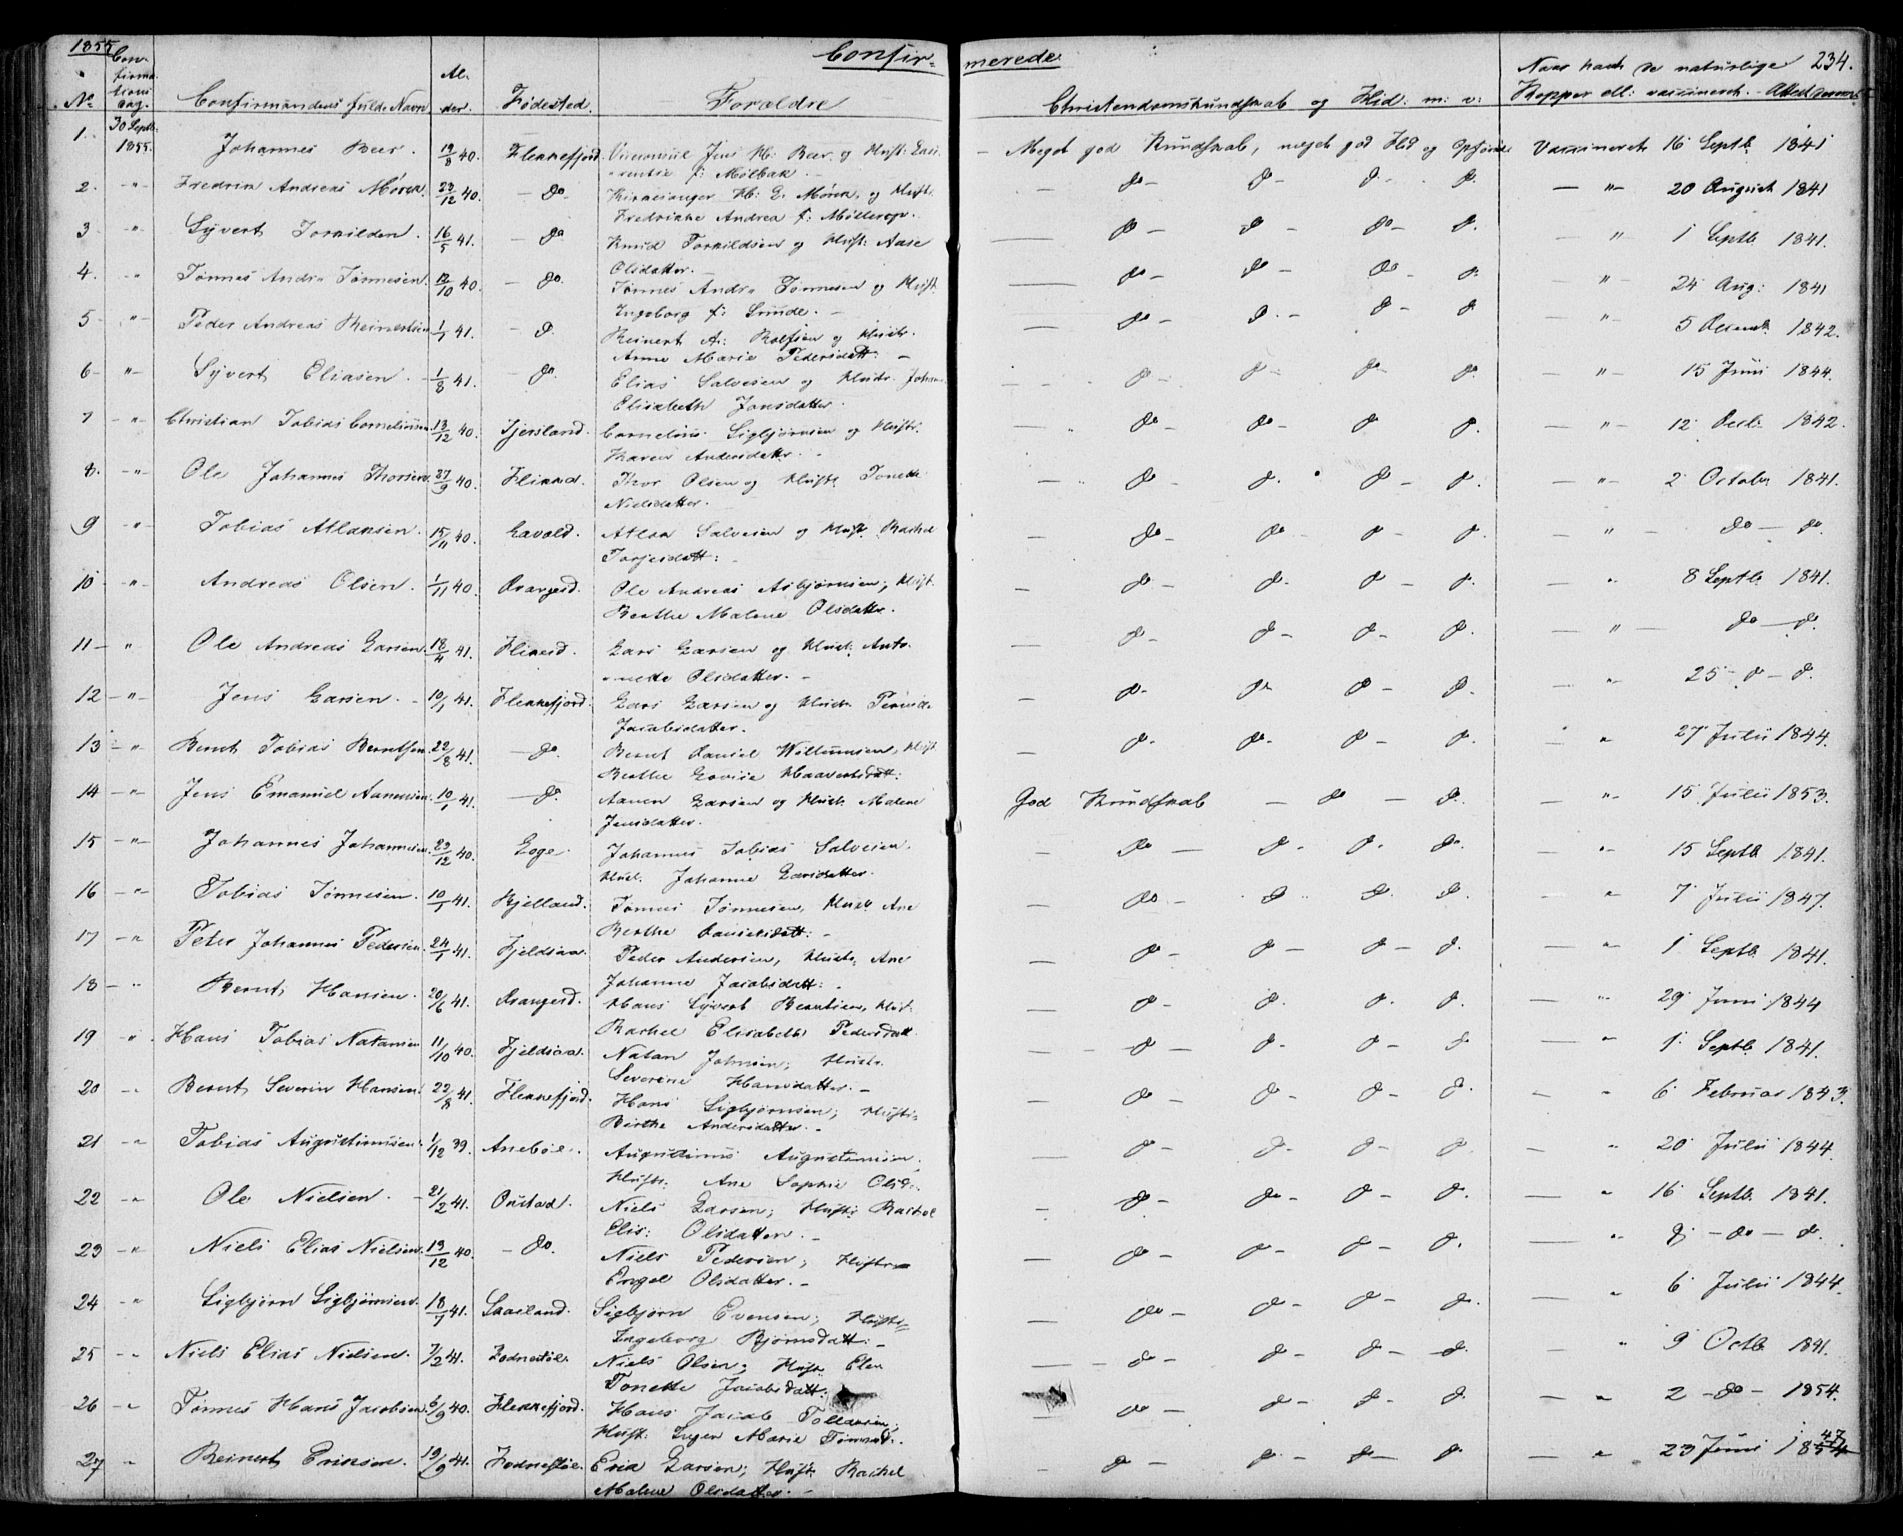 1855. Confir= merede. 234.
No Confirmations Dag. Confirmandens fulde Navn Alder. Fødested. Forældre Christendomskundskab og Flid: m: v: Naar havt de naturlige Kopper ell: vaccineret.
1. 30 Septb. 1855. Johannes Beer. 40. Flekkefjord. Jens H: Beer og Hust: Meget god Kundskab, meget god Flid og Opførsel Vaccineret 16 Septb. 1841
f: Mølbak.
2. -"- Fredrik Andreas Mørch 23/12 40. - do. Kirkesanger H: E: Mørch, og Hust: - do - do - do - do. - " - 20 August 1841
Fredrikke Andrea f: Møllerop.
3. " Syvert Torkildsen. 16/5 41. - do Knud Torkildsen og Hust: Aase - do - do - do - do. - " - 1 Septb. 1841.
Olsdatter. -
4. -"- Tønnes Andr. Tønnesen. 12/10 40. - do. Tønnes Andr. Tønnesen og Hust. - do - do - do - do. - " - 24 Aug: 1841
Ingeborg f: Sunde. -
5 -"- Peder Andreas Reinertsen 1/1 41. - do. Reinert A: Rolfsen og Hustr. - do - do. - do - do. - " - 5 Decemb. 1842.
Anne Marie Pedersdatt: -
6 - " - Syvert Eliasen. 1/8 41. - do. Elias Salvesen og Hustr. Johan - do - do - do - do. - " - 15 Juni 1844.
Elisabeth Jonsdatter.
7 -"- Christian Tobias Corneliusen. 13/12 40. Cornelius Sigbjørnsen og Hustr. do - do - do do. - " - 12 Decb. 1842.
Karen Andersdattr.
8. -"- Ole Johannes Thorsen 27/9 40. Thor Olsen og Hustr. Tonette - do - do. do - do. - " - 2 October 1841.
Nielsdatter.
9 " Tobias Atlaksen. 15/11 40. Lavold. Atlak Salvesen og Hustr. Rachel - do - do - do - do. " do - do.
Torjesdatt: -
10 -"- Andreas Olsen. 1/11 40. Drangeid. Ole Andreas Asbjørnsen, Hust. - do - do. do - do. - " 8 Septb. 1841.
Berthe Malene Olsdattr.
11 - " Ole Andreas Larsen 18/4 41. Lars Larsen og Hust: Anto- do - do - do - do. - " - do - do.
nette Olsdatter. -
12 -"- Jens Larsen. - 10/1 41. Flekkefjord. Lars Larsen og Hustr. - do - do do - do. - " 25 - do - do.
Jacobsdatter.
13 - " Bernt Tobias Berntsen. 22/8 41. - do. Bernt Daniel Willumsen, Hust - do - do. do - do. " 27 Julii 1844.
Berthe Lovise Haavorsdatt:
14 -"- Jens Emanuel Aanensen. 10/1 41. - do. Aanen Larsen og Hust: Malene God Kundskab - do - do. - " - 15 Julii 1853.
Jensdatter.
15 -"- Johannes Johannesen. 23/12 40. Loge. Johannes Tobias Salvesen. - do - do - do. do. - " - 15 Septb. 1841.
Hust. Johanne Larsdatter.
16 -"- Tobias Tønnesen. 10/1 41. Kjelland. Tønnes Tønnesen, Hustr. Ane - do. do do. do. " 7 Julii 1847.
Berthe Danielsdatt: -
17 -"- Peter Johannes Pedersen. 24/1 41. Fjeldsaa. Peder Andersen, Hustr. Ane - do - do - do - do. - " 1 Septb. 1841.
Johanne Jacobsdatt: -
18 - " Bernt Hansen. 20/6 41. Drangeid. Hans Syvert Berntsen, Hust. - do - do. do. do. - " 29 Juni 1844
Rachel Elisabeth Pedersdatt
19 " Hans Tobias Natansen 11/10 40. Fjeldsaa. Natan Johnsen; Hustr. - do - do - do - do - " 1 Septb. 1841.
Severine Hansdatter. -
20 " Bernt Severin Hansen 22/8 41. Flekkefjord. Hans Sigbjørnsen; Hustr. - do - do - do - do. - " 6 Februar 1843.
Birthe Andersdatter. -
21 " Tobias Augustinussen. 1/12 39. Anebøe. Augustinus Augustinusen - do - do - do - do. - " 20 Julii 1844.
Hustr. Ane Sophie Olsd.
22 -"- Ole Nielsen. - 21/2 41. Oustad. Niels Larsen; Hustr: Rachel - do - do - do - do. - " 16 Septb. 1841.
Elis: Olsdatter. -
23 -"- Niels Elias Nielsen. 13/12 40. - do. Niels Pedersen; Hustr. - do - do - do - do. - " 8 - do - do.
Engel Olsdatter. -
24 -"- Sigbjørn Sigbjørnsen. 18/7 41. Sigbjørn Evensen; Hustr. - do - do - do - do. - " 6 Julii 1844.
Ingeborg Bjørnsdatt: -
25 -"- Niels Elias Nielsen. 7/2 41. Niels Olsen; Hust. Elen - do - do - do - do. " 9 Octb. 1841.
Tonette Jacobsdatt:
26 - " Tønnes Hans Jacobsen 6/9 40. Flekkefjord. Hans Jacob Tollaksen; - do - do - do - do. - " 2 - do - 1854.
Hust. Inger Marie Tønnesd.
27 " Reinert Eriksen. 19/9 41. Erik Larsen; Hustr Rachel - do - do - do - do. - " 23 Juni 1847
Malene Olsdatter. -